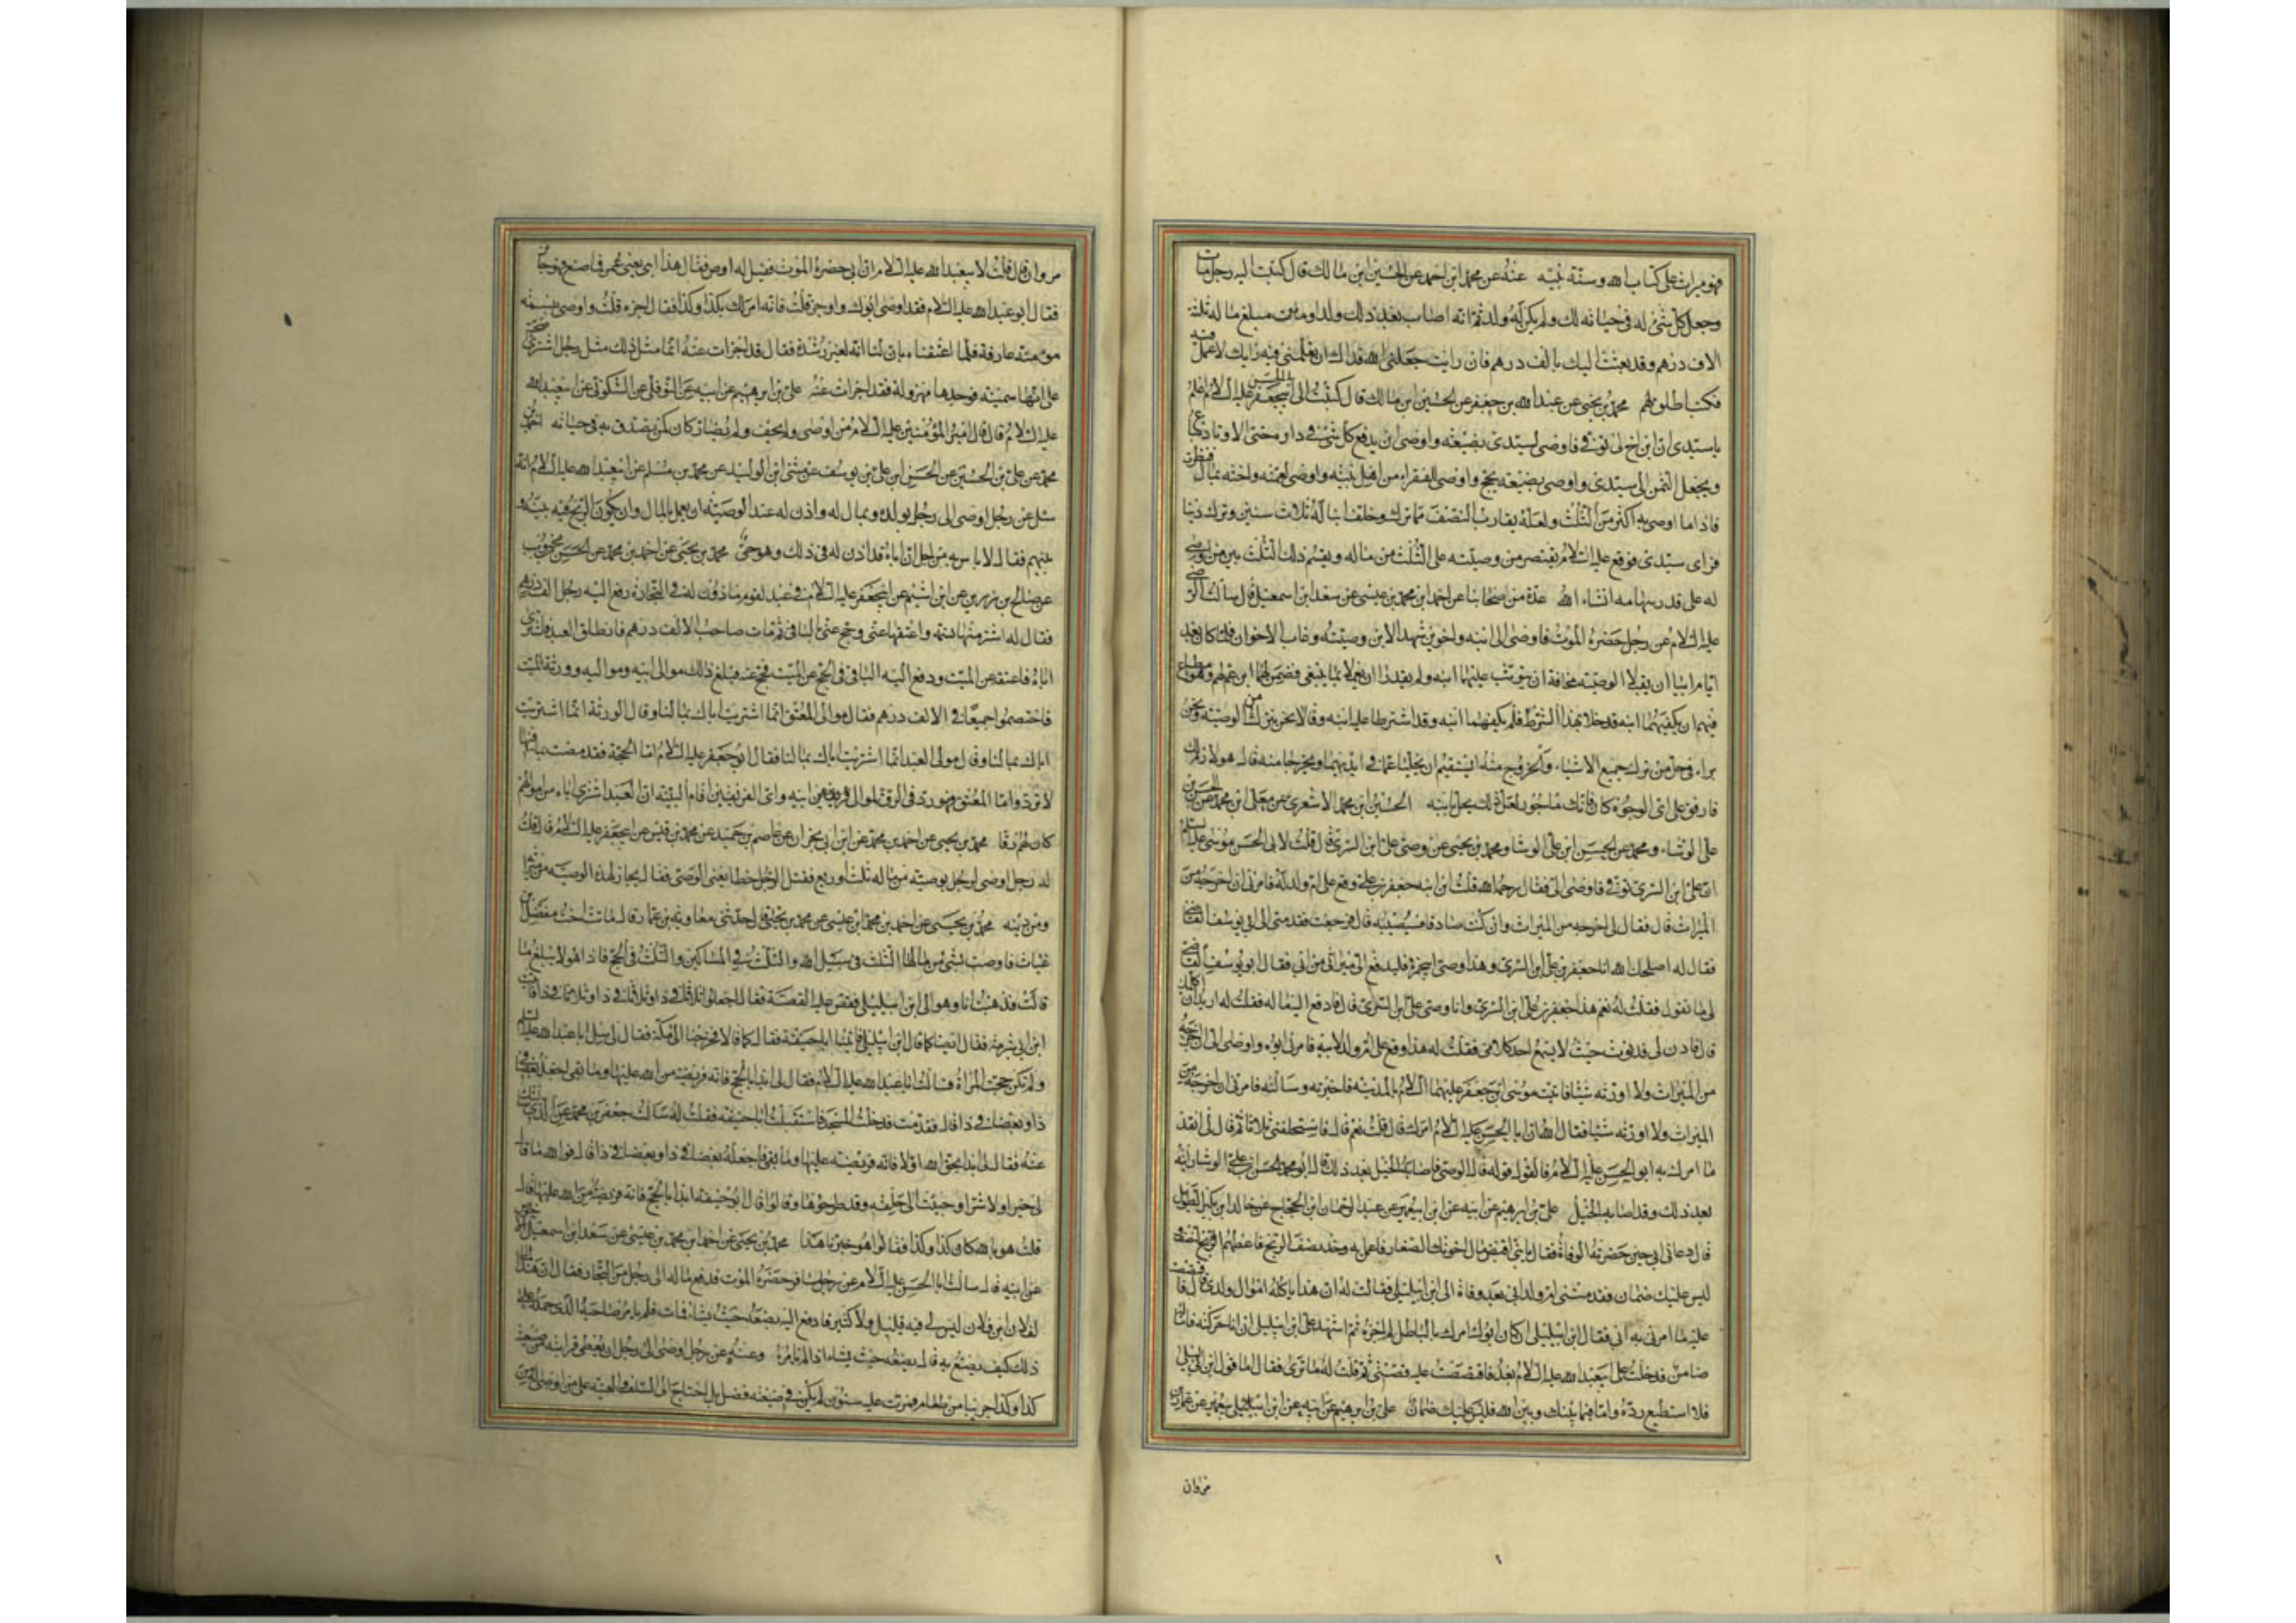 فهو ميراث على كتاب الله وسنة نبيه عنه عن محمد ابن احمد عن الحسين ابن مالك قال كتبت اليه رجل مات
وجعل كل شئ له في حياته لك ولم يكن له ولد ثم انه اصاب بعد ذلك ولدا ومبلغ ماله ثلثة
الاف درهم وقد بعثت اليك بالف درهم فان رايت جعلني الله فداك ان تعلمني فيه رايك لاعمل به
فكتب اطلق لهم محمد بن يحيى عن عبد الله بن جعفر عن الحسين ابن مالك قال كتبت الى عليه السلام اعلم
يا سيدي ان ابن اخ لي توفي فاوصى لسيدي بضيعة واوصى ان يدفع كل شئ في داره حتى الاوتاد تباع
ويجعل الثمن الى سيدي واوصى بحج واوصى للفقراء من اهل بيته واوصى لعمته واخته بمال فنظرت
فاذا ما اوصى به اكثر من الثلث ولعله يقارب النصف مما ترك وخلف ابنا له ثلاث سنين وترك دينا
فراى سيدي فوقع عليه السلام يقتصر من وصيته على الثلث من ماله ويقسم ذلك الثلث بين من اوصى
له على قدر سهامهم انشاء الله عدة من اصحابنا عن احمد ابن محمد بن عيسى عن سعد ابن اسمعيل قال سالت الرضا
عليه السلام عن رجل حضره الموت فاوصى الى ابنه واخوين شهد الابن وصيته وغاب الاخوان فلما كان بعد
ايام ابيا ان يقبلا الوصية مخافة ان يتوثب عليهما ابنه ولم يقدرا ان يعملا بما ينبغي فضمن لهما ابن عم لهم وهو مطاع
فيهم ان يكفيهما ابنه فدخلا بهذا الشرط فلم يكفهما ابنه وقد اشترطا عليه ابنه وقالا نحن نبرا من الوصية ونحن
براء في حل من ترك جميع الاشياء والخروج منه ايستقيم ان يخليا عما في ايديهما ويخرجا منه قال هو لازم لك
فارفق على اي الوجوه كان فانك ماجور لعل ذلك يحل بابنه الحسين ابن محمد الاشعري عن معلى ابن محمد عن الحسن بن
علي الوشاء ومحمد عن الحسن ابن علي الوشا ومحمد بن يحيى عن وصي علي ابن السري قال قلت لابي الحسن موسى عليه السلم
ان علي ابن السري توفي فاوصى الي فقال رحمه الله قلت ان ابنه جعفر بن علي وقع على ام ولد له فامرني ان اخرجه من
الميراث قال فقال لي اخرجه من الميراث وان كنت صادقا فسيصيبه قال فرجعت فقدمني الى ابي يوسف القاضي
فقال له اصلحك الله انا جعفر بن علي ابن السري وهذا وصي ابي فمره فليدفع الي ميراثي من ابي فقال ابو يوسف القاضي
لي ما تقول فقلت له نعم هذا جعفر بن علي ابن السري وانا وصي علي بن السري قال فادفع اليه ماله فقلت له اريد ان اكلمك
قال فادن لي فدنوت حيث لا يسمع احد كلامي فقلت له هذا وقع على ام ولد لابيه فامرني ابوه واوصى الي ان اخرجه
من الميراث ولا اورثه شيئا فاتيت موسى ابن جعفر عليهما السلام بالمدينة فاخبرته وسالته فامرني ان اخرجه من
الميراث ولا اورثه شيئا فقال الله ان ابا الحسن عليه السلام امرك قال قلت نعم قال فاستحلفني ثلاثا ثم قال لي انفذ
ما امرك به ابو الحسن عليه السلام فالقول قوله قال الوصي فاصابه الخبل بعد ذلك قال ابو محمد الحسن ابن علي الوشا رايته
بعد ذلك وقد اصابه الخبل علي بن ابرهيم عن ابيه عن ابن ابي عمير عن عبد الرحمان ابن الحجاج عن خالد ابن بكير الطويل
قال دعاني ابي حين حضرته الوفاة فقال يا بني اقبض مال اخوتك الصغار فاعمل به وخذ نصف الربح واعطهم النصف
ليس عليك ضمان فقدمتني ام ولد ابي بعد وفاة الى ابن ابي ليلى فقالت له ان هذا ياكل اموال ولدي قال فاقتصصت
عليه ما امرني به ابي فقال ابن ابي ليلى ان كان ابوك امرك بالباطل لم اجزه ثم اشهد علي ابن ابي ليلى ان انا حركته فانا له
ضامن فدخلت على ابي عبد الله عليه السلام بعد فاقتصصت عليه قصتي ثم قلت له ما ترى فقال اما قول ابن ابي ليلى
فلا استطيع رده واما فيما بينك وبين الله فليس عليك ضمان علي بن ابرهيم عن ابيه عن ابن ابي عمير عن عمار بن
مروان
مروان قال قلت لابي عبد الله عليه السلام ان ابي حضره الموت فقيل له اوص فقال هذا ابني يعني عمر فما صنع فهو جائز
فقال ابو عبد الله عليه السلام فقد اوصى ابوك واوجز قلت فانه امر لك بكذا وكذا فقال اجزه قلت واوصى بنسمة
مؤمنة عارفة فلما اعتقناه بان لنا انه لغير رشدة فقال قد اجزات عنه انما مثل ذلك مثل رجل اشترى اضحية
على انها سمينة فوجدها مهزولة فقد اجزات عنه علي بن ابرهيم عن ابيه عن النوفلي عن السكوني عن ابي عبد الله
عليه السلام قال قال امير المؤمنين عليه السلام من اوصى ولم يحف ولم يضار كان كمن تصدق به في حياته احمد بن
محمد عن علي بن الحسين عن الحسن ابن علي بن يوسف عن مثنى ابن الوليد عن محمد بن مسلم عن ابي عبد الله عليه السلام انه
سئل عن رجل اوصى الى رجل بولده وبمال له واذن له عند الوصية ان يعمل بالمال وان يكون الربح فيه بينه و
بينهم فقال لا باس به من اجل ان اباه قد اذن له في ذلك وهو حي محمد بن يحيى عن احمد بن محمد عن الحسن بن محبوب
عن صالح بن رزين عن ابن اشيم عن ابي جعفر عليه السلام في عبد لقوم ماذون له في التجارة دفع اليه رجل الف درهم
فقال له اشتر منها نسمة واعتقها عني وحج عني بالباقي ثم مات صاحب الالف درهم فانطلق العبد فاشترى
اباه فاعتقه عن الميت ودفع اليه الباقي في الحج عن الميت فحج عنه فبلغ ذلك موالي ابيه ومواليه وورثة الميت
فاختصموا جميعا في الالف درهم فقال موالي المعتق انما اشتريت اباك بمالنا وقال الورثة انما اشتريت
اباك بمالنا وقال مولى العبد انما اشتريت اباك بمالنا فقال ابو جعفر عليه السلام اما الحجة فقد مضت بما فيها
لا ترد واما المعتق فهو رد في الرق لموالي ابيه واي الفريقين اقام البينة ان العبد اشترى اباه من اموالهم
كان لهم رقا محمد بن يحيى عن احمد بن محمد عن ابن ابي نجران عن عاصم بن حميد عن محمد بن قيس عن ابي جعفر عليه السلام قال قلت
له رجل اوصى لرجل بوصية من ماله ثلث او ربع فقتل الرجل خطا يعني الموصي فقال يجاز لهذه الوصية من ميراثه
ومن ديته محمد بن يحيى عن احمد بن محمد ابن عيسى عن محمد بن يحيى قال حدثني معاوية بن عمار قال ماتت اخت مفضل بن
غياث فاوصت بشئ من مالها الثلث في سبيل الله والثلث في المساكين والثلث في الحج فاذا هو لا يبلغ ما
قالت فذهبت انا وهو الى ابن ابي ليلى فقص عليه القصة فقال اجعلوا ثلثا في ذا وثلثا في ذا وثلثا في ذا فاتينا
ابن شبرمة فقال ايضا كما قال ابن ابي ليلى فاتينا ابا حنيفة فقال كما قالا فخرجنا الى مكة فقال لي سل ابا عبد الله عليه السلم
ولم تكن حجت المراة فسالت ابا عبد الله عليه السلام فقال لي ابدا بالحج فانه فريضة من الله عليها وما بقي اجعل بعضا في
ذا وبعضا في ذا قال فقدمت فدخلت المسجد فاستقبلت ابا حنيفة فقلت له سالت جعفر بن محمد عن الذي سالتك
عنه فقال لي ابدا بحق الله اولا فانه فريضة عليها وما بقي فاجعله بعضا في ذا وبعضا في ذا قال فوالله ما قال
لي خيرا ولا شرا وجئت الى حلقته وقد طرحوها وقالوا قال ابو حنيفة ابدا بالحج فانه فريضة من الله عليها قال
قلت هو بالله كان كذا وكذا فقالوا هو خبرنا هذا محمد بن يحيى عن احمد ابن محمد بن عيسى عن سعد ابن اسمعيل
عن ابيه قال سالت ابا الحسن عليه السلام عن رجل مسافر حضره الموت فدفع ماله الى رجل من التجار فقال ان هذا المال
لفلان ابن فلان ليس لي فيه قليل ولا كثير فادفع اليه يصرفه حيث يشاء فمات فلم يامر صاحبه الذي جعل له
ذلك كيف يصنع به قال يضعه حيث يشاء اذا لم يامره وعنه عن رجل اوصى الى رجل ان يعطي قرابته من ضيعته
كذا وكذا جريبا من طعام فمرت عليه سنون لم يكن في ضيعته فضل بل احتاج الى السلف والعينة على من اوصى له من